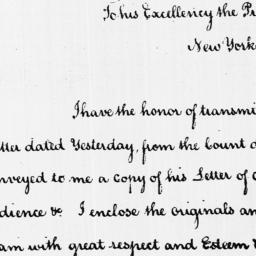 To his Excellency the Pr
New York
I have the honor of transmi
tter dated Yesterday, from the Count d
nveyed to me a Copy of his Letter of C
dience &c I enclose the originals an
am with great respect and Esteem